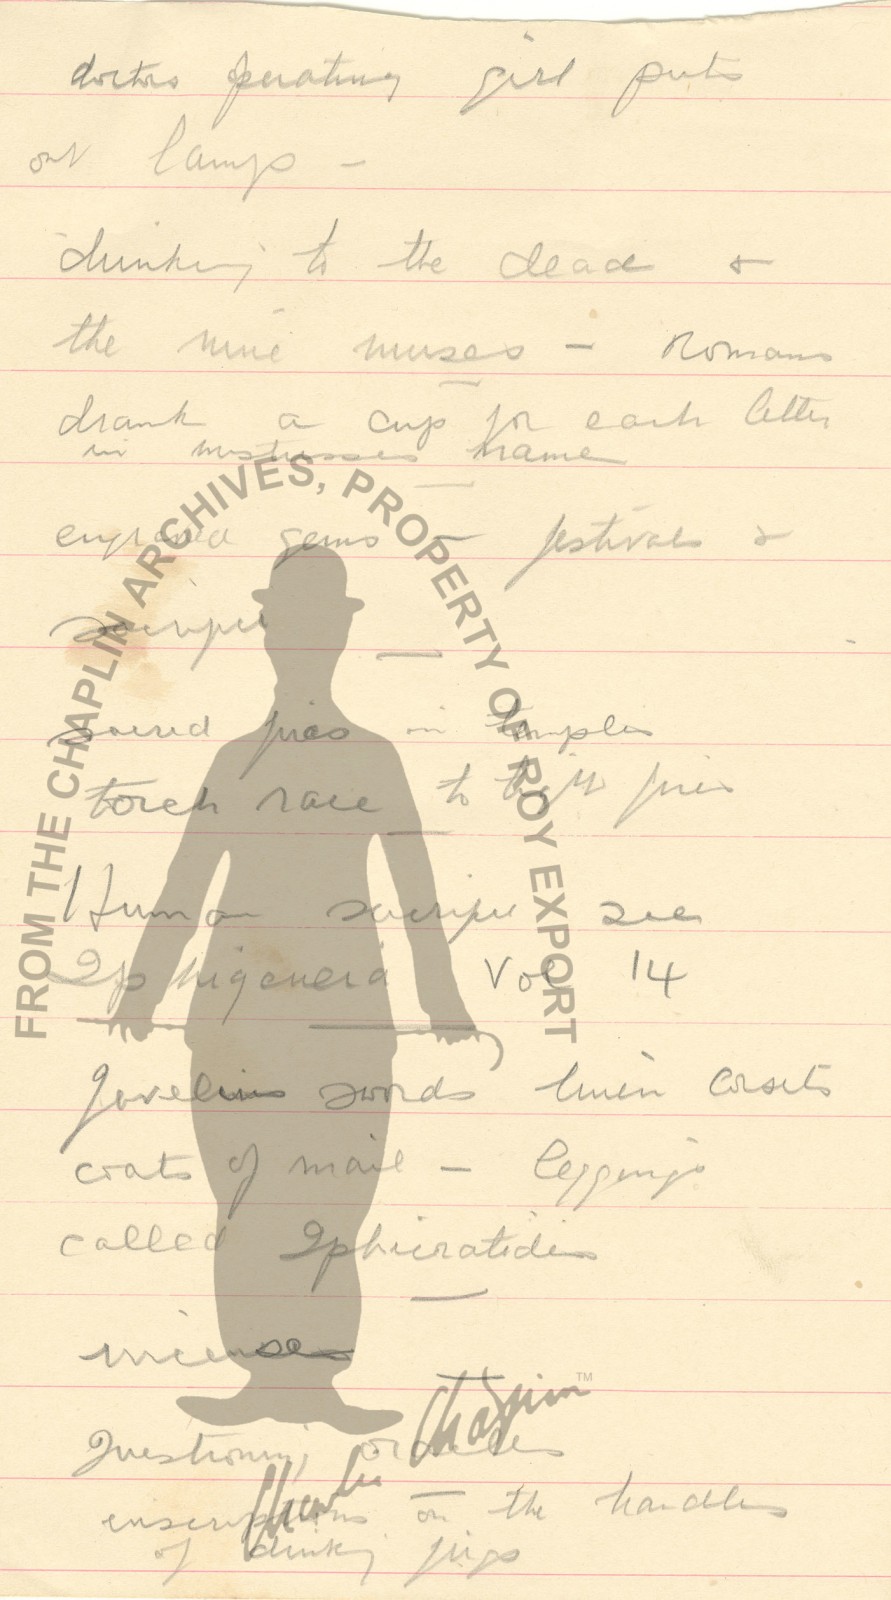 doctors operating girl puts
out lamp -
drinking to the dead &
the nine muses - Romans
drank a cup for each letter
in mistresses name
engraved gems - festivals &
sacrifice
sacred fires in temples
torch race to light fires
Human sacrifice see
Iphigeneia Vol 14
Javelins swords linen corsets
coats of mail - leggings
called Iphicratides
incenses
Questioning oracles
inscriptions on the handles
of drinking jugs
FROM THE CHAPLIN ARCHIVES, PROPERTY OF ROY EXPORT
Charlie Chaplin ™